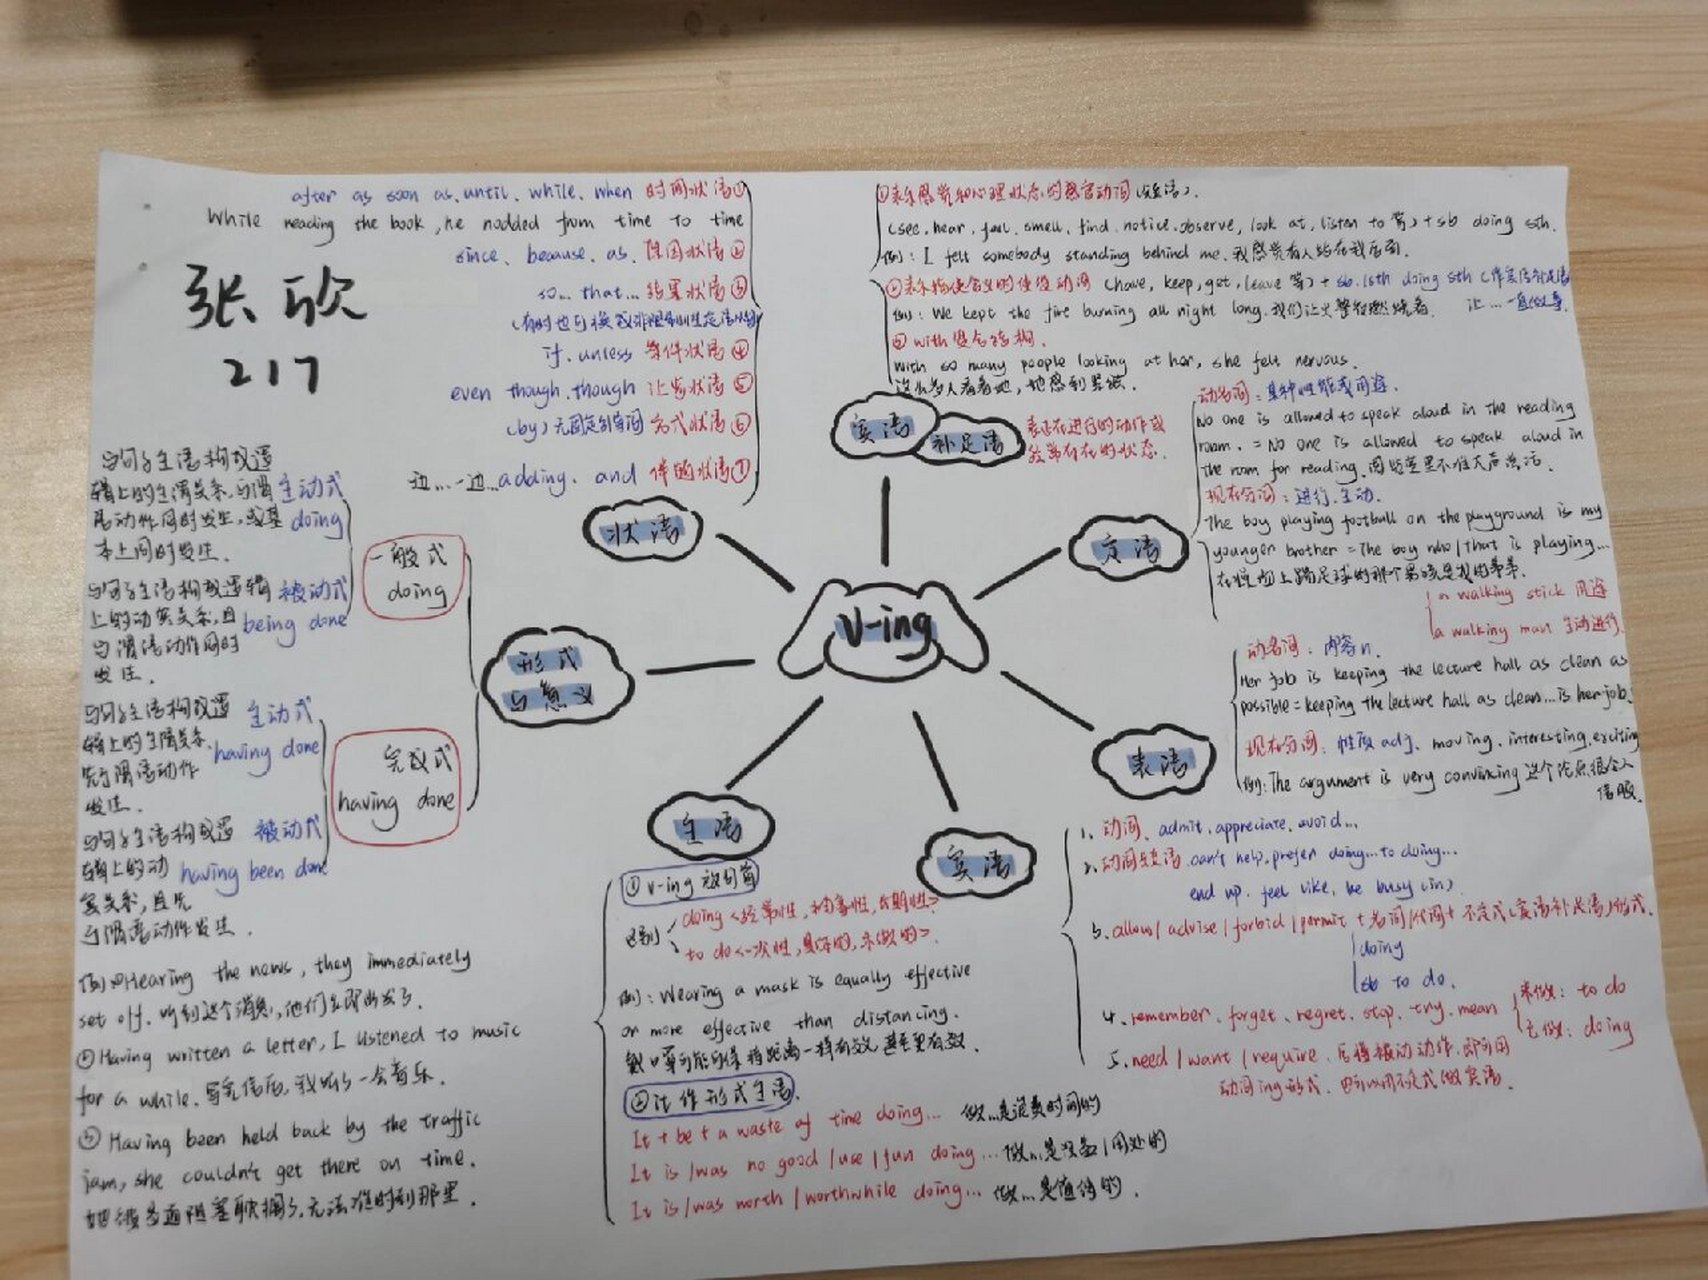 张欣
217
after as soon as, until, while, when 时间状语①
While reading the book, he nodded from time to time
since, because, as, 原因状语②
so... that... 结果状语③
(有时也可换成非限制性定语从句)
if, unless 条件状语④
even though, though 让步状语⑤
(by) 无固定引导词 方式状语⑥
边...一边...adding, and 伴随状语⑦
状语
①表示感觉和心理状态的感官动词(宾语).
(see, hear, feel, smell, find, notice, observe, look at, listen to 等) + sb doing sth.
例: I felt somebody standing behind me. 我感觉有人站在我后面.
②表示指使含义的使役动词 (have, keep, get, leave 等) + sb./sth doing sth (作宾语补足语
例: We kept the fire burning all night long. 我们让火整夜燃烧着. 让...一直做事
③with复合结构.
With so many people looking at her, she felt nervous.
这么多人看着她, 她感到紧张.
宾语 补足语
表正在进行的动作或
经常存在的状态.
定语
动名词: 某种性能或用途.
No one is allowed to speak aloud in the reading
room. = No one is allowed to speak aloud in
the room for reading. 阅览室里不准大声说话.
现在分词: 进行, 主动.
The boy playing football on the playground is my
younger brother = The boy who/that is playing...
在操场上踢足球的那个男孩是我的弟弟.
a walking stick 用途
a walking man 主动进行
表语
动名词: 内容n.
Her job is keeping the lecture hall as clean as
possible = keeping the lecture hall as clean...is her job.
现在分词: 性质adj. moving, interesting, exciting
例: The argument is very convincing 这个论点很令人
信服.
V-ing
形式
与意义
一般式
doing
与句子主语构成逻
辑上的主谓关系, 与谓 主动式
语动作同时发生, 或基 doing
本上同时发生.
与句子主语构成逻辑 被动式
上的动宾关系, 且 being done
与谓语动作同时
发生.
完成式
having done
与句子主语构成逻 主动式
辑上的主谓关系, having done
先于谓语动作
发生.
与句子主语构成逻 被动式
辑上的动 having been done
宾关系, 且先
于谓语动作发生.
例①Hearing the news, they immediately
set off. 听到这个消息, 他们立即出发了.
②Having written a letter, I listened to music
for a while. 写完信后, 我听了一会音乐.
③Having been held back by the traffic
jam, she couldn't get there on time.
她被路面阻塞耽搁了, 无法准时到那里.
主语
①V-ing 放句首
区别 doing <经常性, 抽象性, 长期性>
to do <一次性, 具体的, 未做的>.
例: Wearing a mask is equally effective
or more effective than distancing.
戴口罩可能可保持距离一样有效, 甚至更有效.
②it 作形式主语.
It + be + a waste of time doing... 做...是浪费时间的
It is/was no good/use/fun doing... 做...是没好/用处的
It is/was worth/worthwhile doing... 做...是值得的.
宾语
1. 动词. admit, appreciate, avoid...
2. 动词短语. can't help, prefer doing...to doing...
end up, feel like, be busy (in)
3. allow/advise/forbid/permit + 名词/代词 + 不定式(宾语补足语)形式.
doing
sb to do.
4. remember, forget, regret, stop, try, mean 未做: to do
已做: doing
5. need/want/require. 后接被动动作, 即可用
动词ing形式. 也可以用不定式做宾语.